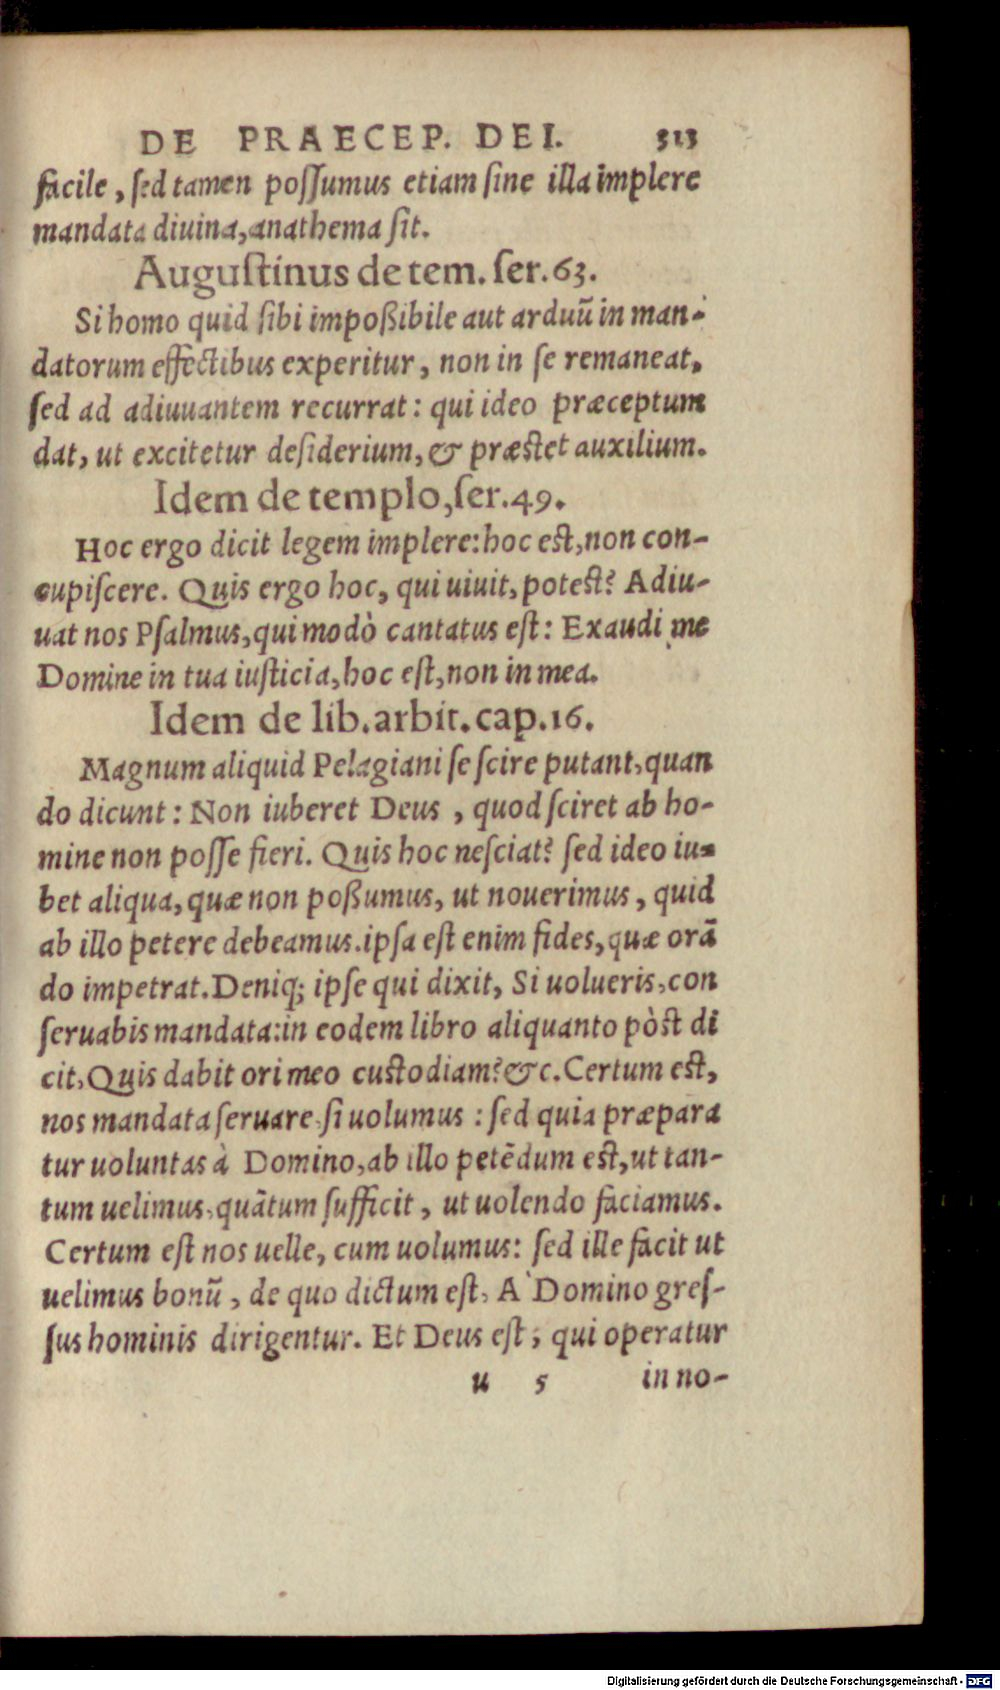 DE PRAECEP. DEI. 313
facile, ſed tamen poſſumus etiam ſine illa implere
mandata diuina, anathema ſit.
Auguſtinus de tem. ſer. 63.
Si homo quid ſibi impoßibile aut arduū in man-
datorum effectibus experitur, non in ſe remaneat,
ſed ad adiuuantem recurrat: qui ideo præceptum
dat, ut excitetur deſiderium, & præſtet auxilium.
Idem de templo, ſer. 49.
Hoc ergo dicit legem implere: hoc eſt, non con-
cupiſcere. Quis ergo hoc, qui uiuit, poteſt? Adiu-
uat nos Pſalmus, qui modò cantatus eſt: Exaudi me
Domine in tua iuſticia, hoc eſt, non in mea.
Idem de lib. arbit. cap. 16.
Magnum aliquid Pelagiani ſe ſcire putant, quan
do dicunt: Non iuberet Deus, quod ſciret ab ho-
mine non poſſe fieri. Quis hoc neſciat? ſed ideo iu-
bet aliqua, quæ non poßumus, ut nouerimus, quid
ab illo petere debeamus. ipſa eſt enim fides, quæ orā
do impetrat. Deniq; ipſe qui dixit, Si uolueris, con
ſeruabis mandata: in eodem libro aliquanto pòſt di
cit, Quis dabit ori meo cuſtodiam? &c. Certum eſt,
nos mandata ſeruare, ſi uolumus: ſed quia præpara
tur uoluntas à Domino, ab illo petēdum eſt, ut tan-
tum uelimus, quātum ſufficit, ut uolendo faciamus.
Certum eſt nos uelle, cum uolumus: ſed ille facit ut
uelimus bonū, de quo dictum eſt, A` Domino greſ-
ſus hominis dirigentur. Et Deus eſt, qui operatur
u 5 in no-
Digitalisierung gefördert durch die Deutsche Forschungsgemeinschaft - DFG